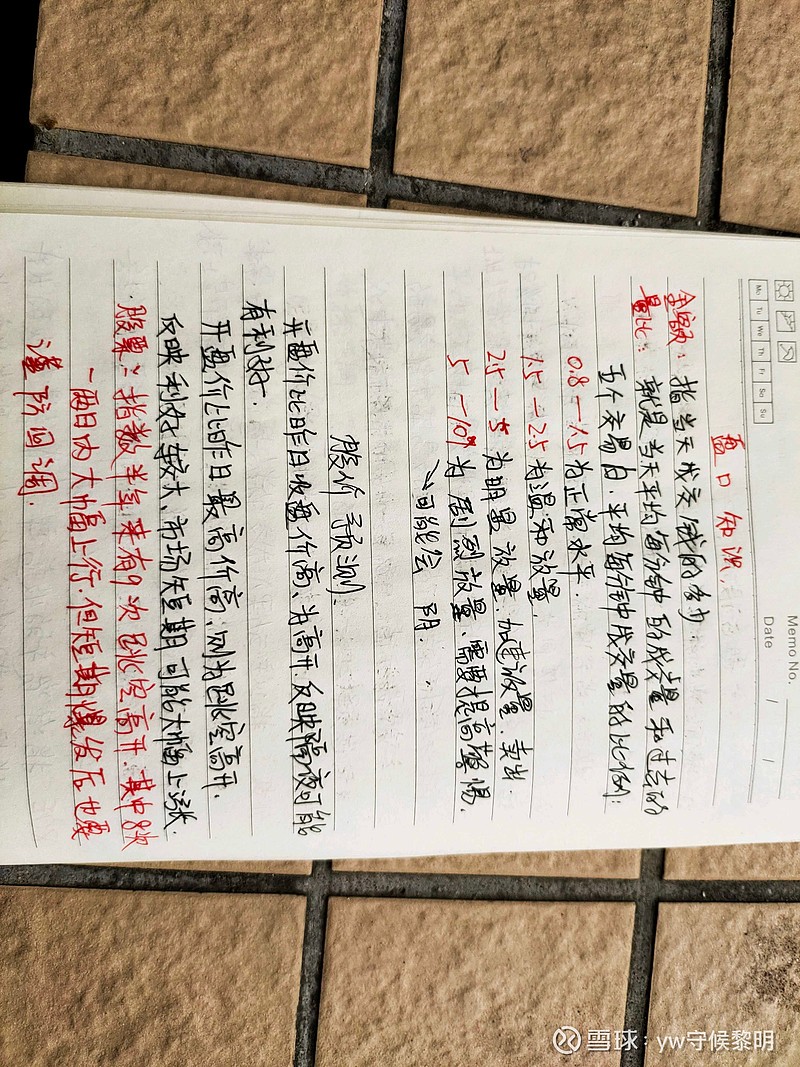 Memo No.
Date / /
Mo Tu We Th Fr Sa Su
盘口知识
金额：指当天成交额的多少.
量比：就是当天平均每分钟的成交量和过去的
五个交易日.平均每分钟成交量的比例：
0.8—1.5为正常水平.
1.5—2.5为温和放量.
2.5—5为明显放量.加速放量.卖出.
5—10倍为剧烈放量、需要提高警惕.
↘可能会阴.
股价预测.
开盘价比昨日收盘价高、为高开.反映隔夜可能
有利好.
开盘价比昨日最高价高、则为跳空高开.
反映利好较大、市场短期可能大幅上涨.
股票：指数半年来有9次跳空高开.其中8次
一两日内大幅上行.但短期爆发后也要
谨防回调.
雪球：yw守候黎明